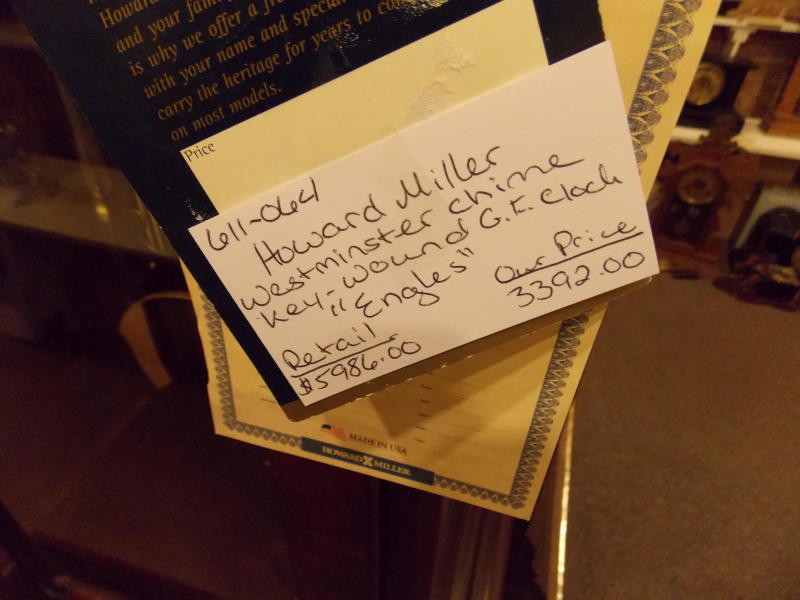 Howard
and your fam
is why we offer a fr
with your name and speci
carry the heritage for years to co
on most models.
Price
611-064
Howard Miller
Westminster chime
Key-wound G.F. Clock
"Engles"
Retail
$5986.00
Our Price
3392.00
MADE IN USA
HOWARD MILLER